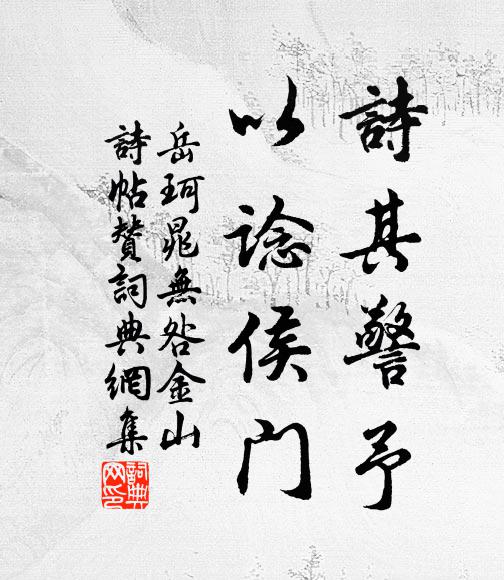 詩其警予
以諗侯門
岳珂晁無咎金山
詩帖贊詞典網集
詞典网印